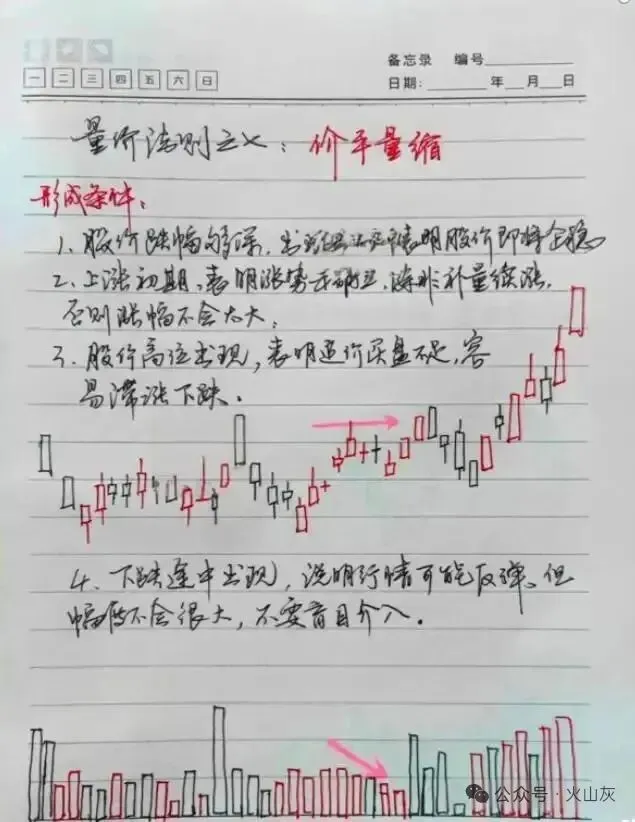 备忘录 编号
一 二 三 四 五 六 日
日期: 年 月 日
量价法则之七：价平量缩
形成条件：
1、股价跌幅够深，出现 表明股价即将企稳
2、上涨初期、表明涨势 ，除非补量续涨，
否则涨幅不会太大；
3、股价高位出现，表明追价买盘不足，容
易滞涨下跌．
4、下跌途中出现，说明行情可能反弹、但
幅度不会很大，不要盲目介入．
公众号·火山灰